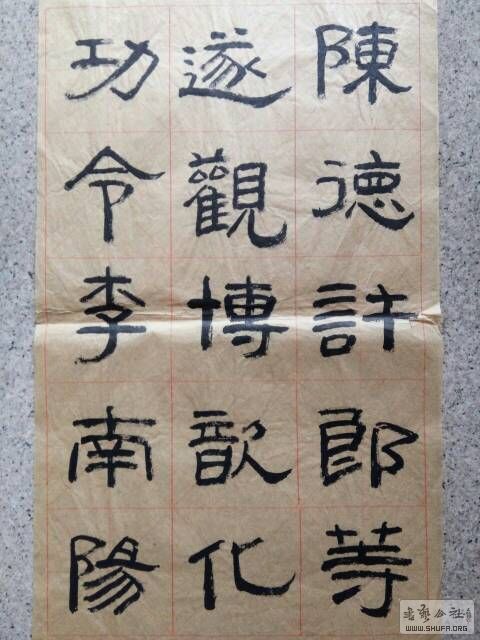 陳德許郎等
遂觀博歆化
功令李南陽
書藝公社
WWW.SHUFA.ORG